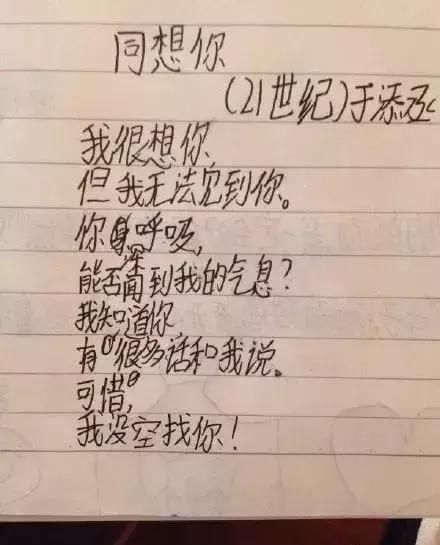 同想你
(21世纪)于添丞
我很想你,
但我无法见到你。
你深呼吸,
能否闻到我的气息?
我知道你,
有很多话和我说。
可惜,
我没空找你!